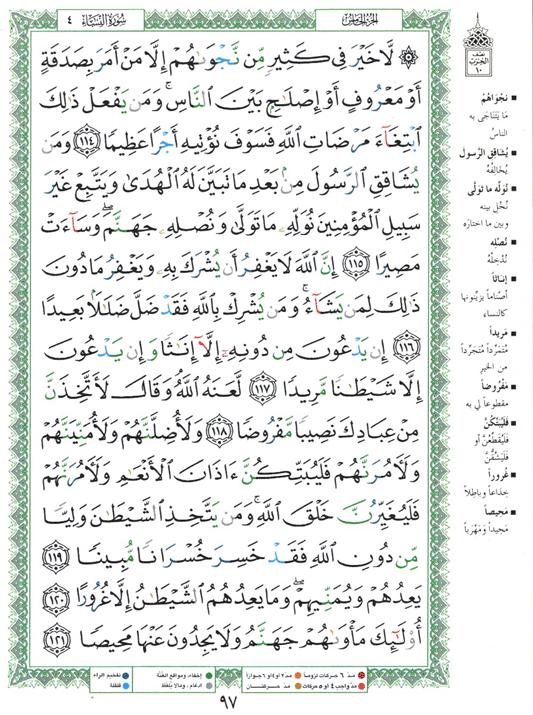 سُورَةُ النِّسَاءِ ٤
الجُزءُ الخَامِسُ
۞ لَّا خَيْرَ فِى كَثِيرٍ مِّن نَّجْوَىٰهُمْ إِلَّا مَنْ أَمَرَ بِصَدَقَةٍ
أَوْ مَعْرُوفٍ أَوْ إِصْلَٰحٍ بَيْنَ ٱلنَّاسِ ۚ وَمَن يَفْعَلْ ذَٰلِكَ
ٱبْتِغَآءَ مَرْضَاتِ ٱللَّهِ فَسَوْفَ نُؤْتِيهِ أَجْرًا عَظِيمًا ١١٤ وَمَن
يُشَاقِقِ ٱلرَّسُولَ مِنۢ بَعْدِ مَا تَبَيَّنَ لَهُ ٱلْهُدَىٰ وَيَتَّبِعْ غَيْرَ
سَبِيلِ ٱلْمُؤْمِنِينَ نُوَلِّهِۦ مَا تَوَلَّىٰ وَنُصْلِهِۦ جَهَنَّمَ ۖ وَسَآءَتْ
مَصِيرًا ١١٥ إِنَّ ٱللَّهَ لَا يَغْفِرُ أَن يُشْرَكَ بِهِۦ وَيَغْفِرُ مَا دُونَ
ذَٰلِكَ لِمَن يَشَآءُ ۚ وَمَن يُشْرِكْ بِٱللَّهِ فَقَدْ ضَلَّ ضَلَٰلًۢا بَعِيدًا
١١٦ إِن يَدْعُونَ مِن دُونِهِۦٓ إِلَّآ إِنَٰثًا وَإِن يَدْعُونَ
إِلَّا شَيْطَٰنًا مَّرِيدًا ١١٧ لَّعَنَهُ ٱللَّهُ ۘ وَقَالَ لَأَتَّخِذَنَّ
مِنْ عِبَادِكَ نَصِيبًا مَّفْرُوضًا ١١٨ وَلَأُضِلَّنَّهُمْ وَلَأُمَنِّيَنَّهُمْ
وَلَءَامُرَنَّهُمْ فَلَيُبَتِّكُنَّ ءَاذَانَ ٱلْأَنْعَٰمِ وَلَءَامُرَنَّهُمْ
فَلَيُغَيِّرُنَّ خَلْقَ ٱللَّهِ ۚ وَمَن يَتَّخِذِ ٱلشَّيْطَٰنَ وَلِيًّا
مِّن دُونِ ٱللَّهِ فَقَدْ خَسِرَ خُسْرَانًا مُّبِينًا ١١٩
يَعِدُهُمْ وَيُمَنِّيهِمْ ۖ وَمَا يَعِدُهُمُ ٱلشَّيْطَٰنُ إِلَّا غُرُورًا ١٢٠
أُو۟لَٰٓئِكَ مَأْوَىٰهُمْ جَهَنَّمُ وَلَا يَجِدُونَ عَنْهَا مَحِيصًا ١٢١
نصف
الحزب
١٠
■ نجواهُمْ
مَا يَتَنَاجَى به
الناسُ
■ يُشاقِقِ الرَّسول
يُخالِفْهُ
■ نُوَلِّه ما تولَّى
نُخْلِ بينه
وبين ما اختارَه
■ نُصْلِه
نُدْخِلْهُ
■ إناثاً
أصْناماً يزيّنونها
كالنساء
■ مَرِيداً
مُتَمَرِّداً مُتَجَرِّداً
من الخير
■ مفْرُوضاً
مقطوعاً لي به
■ فَلَيُبَتِّكُنَّ
فَلَيُقَطِّعُنَّ أو
فَلَيَشُقُّنَّ
■ غُروراً
خِدَاعاً وباطِلاً
■ مَحِيصاً
مَحِيداً ومَهْرَباً
مدّ ٦ حركات لزوماً
مدّ ٢ أو ٤ أو ٦ جوازاً
إخفاء، ومواقع الغُنَّة
تفخيم الراء
مدّ واجب ٤ أو ٥ حركات
مدّ حركتان
ادغام، ومالا يُلفَظ
قلقلة
٩٧